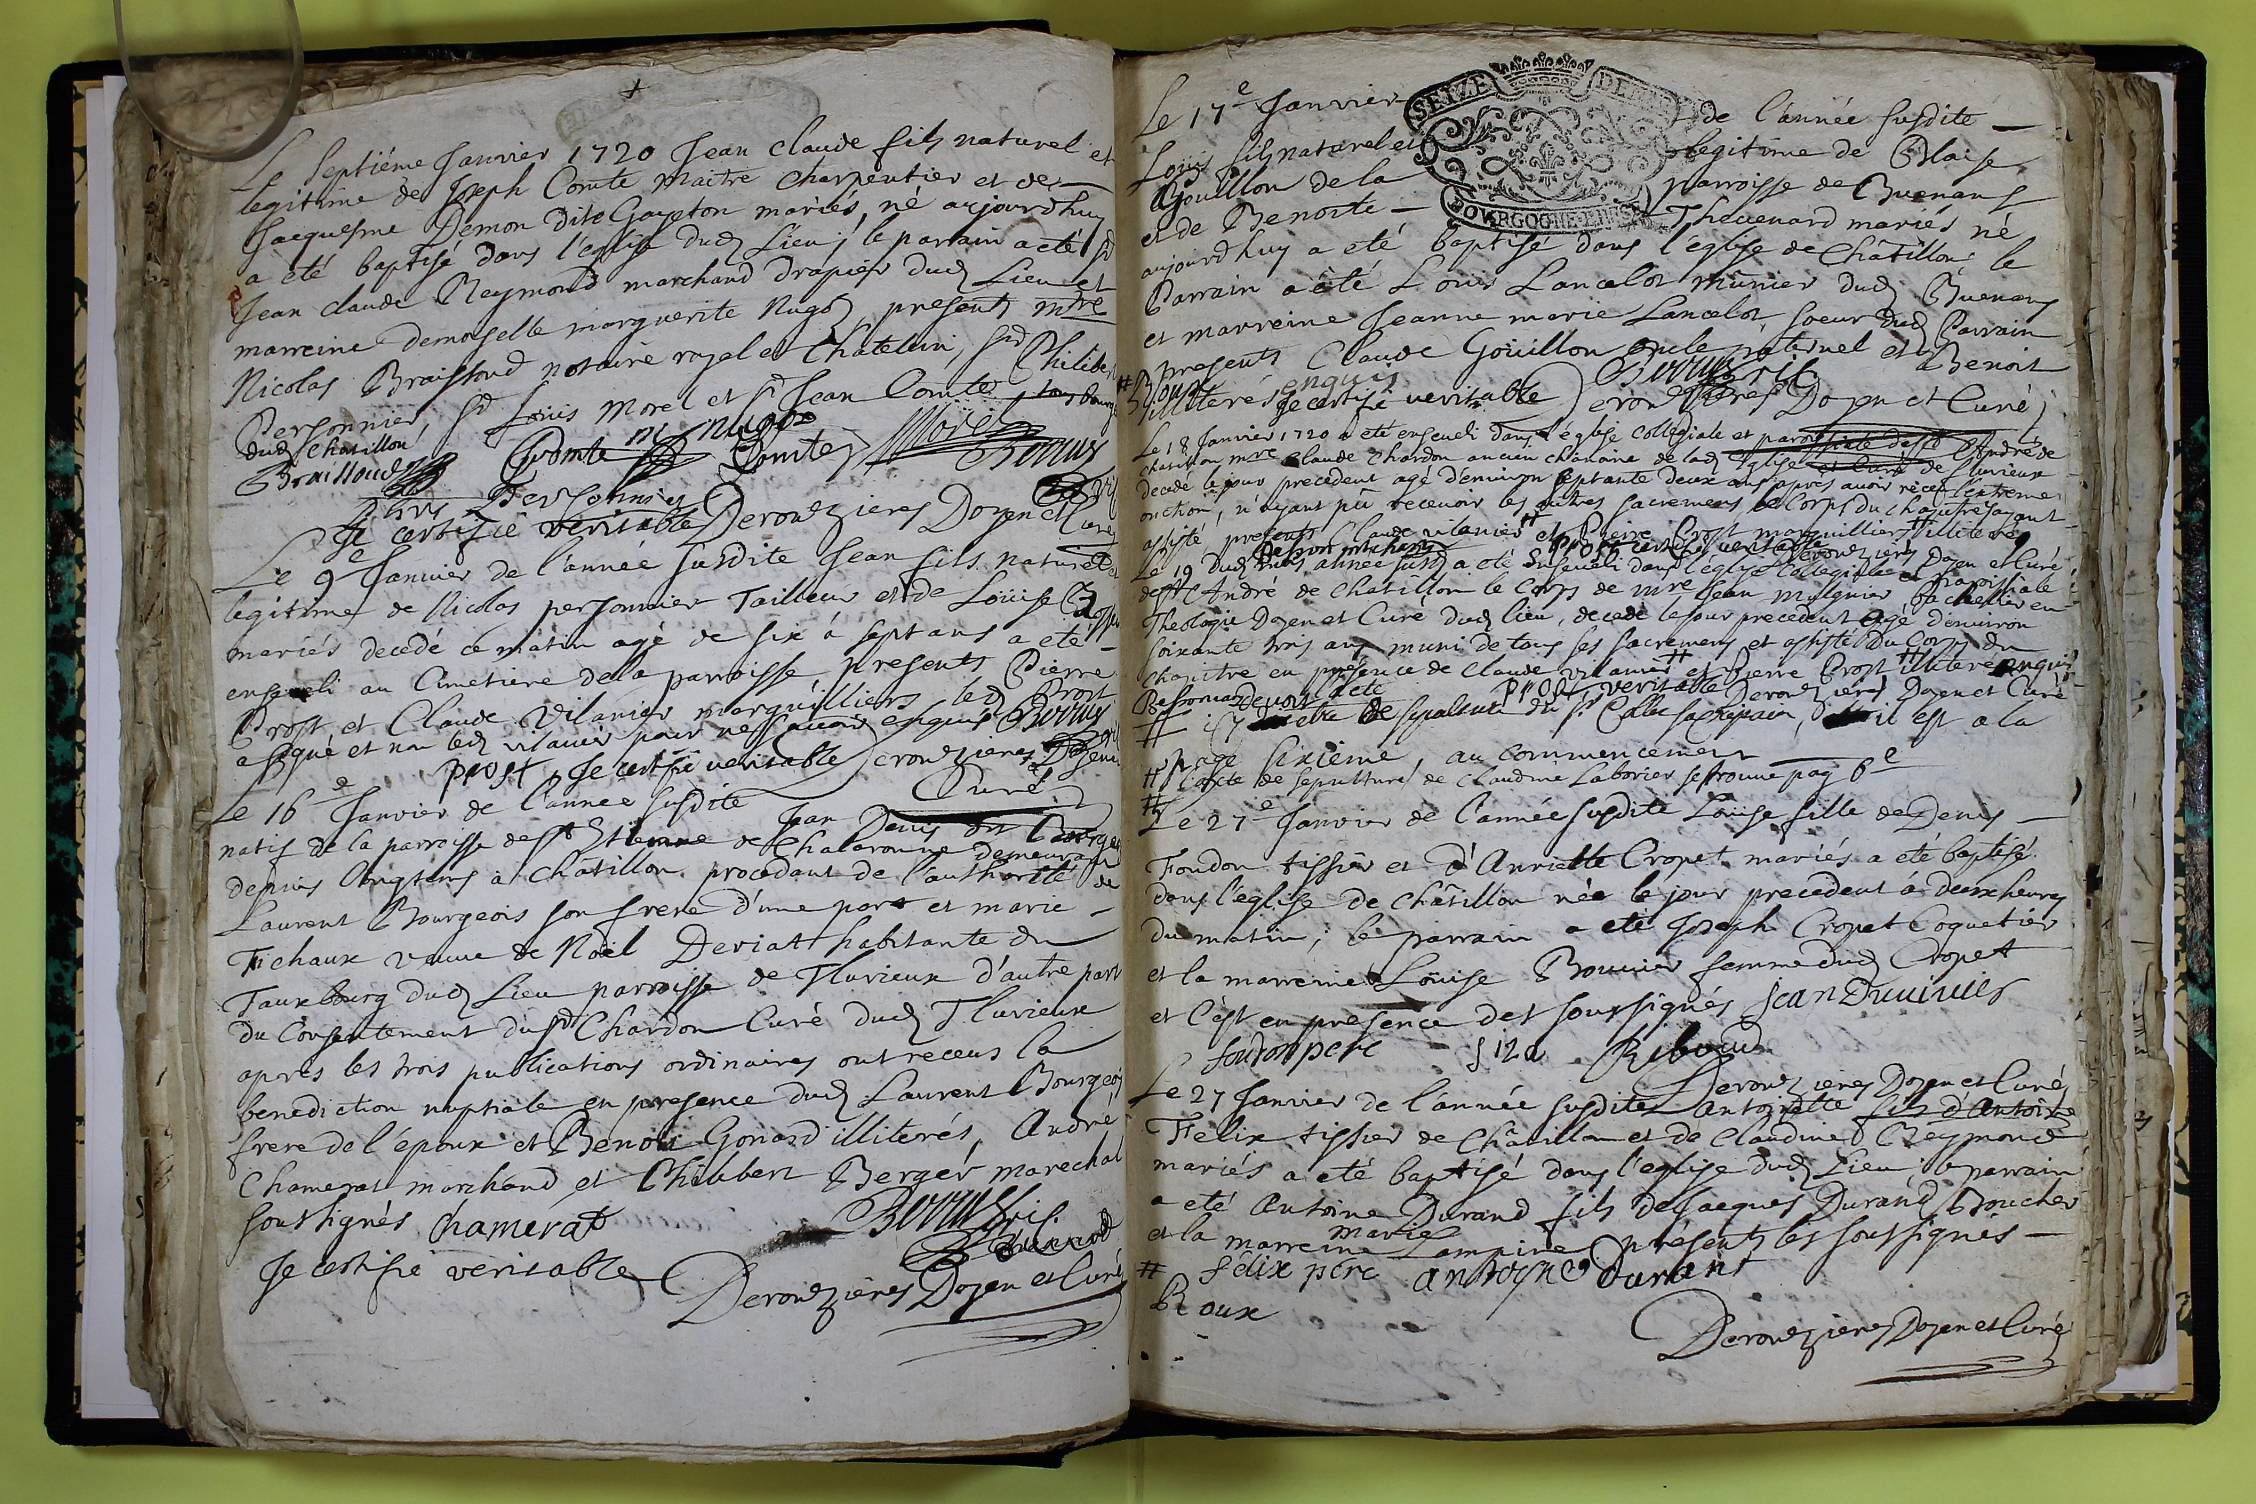 Le Septiéme Janvier 1720 Jean Claude fils naturel et
legitime de Joseph Comte maitre charpentier et de
Jacquesme Demon dite Gayeton mariés, né aujourdhuy
a été baptisé dans l'eglise dud Lieu; le parrain a eté sr
Jean Claude Reymond marchand drapier dud Lieu et
marreine demoiselle marguerite Nugoz, presents mtre
Nicolas Braissoud notaire royal et Chatelain, sr Philibert
Personnier, sr Loüis Morel et sr Jean Comte tous bourg
dud Chatillon
m nugoz
Comte Morel
Personnier
Je certifie veritable Derouzieres Doyen et Curé
Le 9e Janvier de l'année susdite Jean fils naturel et
legitime de Nicolas personnier Tailleur et de Loüise
mariés decedé ce matin agé de six á sept ans a eté
enseveli au Cimetiere de la parroisse, presents Pierre
Prost et Claude Vilanier marguilliers led Prost
a signé et non led vilanier pour ne scavoir enquis
prost Je certifie veritable Derouzieres Doyen
Curé
Le 16e Janvier de l'année susdite Jean Denis dit Bourgeois
natif de la parroisse de st Etienne de Chalaronne demeurant
depuis longtems à Châtillon procedant de l'authorité de
Laurent Bourgeois son frere d'une part et marie
Tichaux veuve de Noël Deriat habitante du
Fauxbourg dud Lieu parroisse de Flurieux d'autre part
du Consentement du sr Chardon Curé dud Flurieux
apres les trois publications ordinaires ont receus la
benediction nuptiale en presence dud Laurent Bourgeois
frere de l'époux et Benoit Gonard illiterés, André
Chamerat marchand et Philibert Berger marechal
soussignés Chamérat
Je certifie veritable
Derouzieres Doyen et Curé
SEIZE DENIERS
BOURGOGNE BRESSE
Le 17e Janvier de l'année susdite
Loüis fils naturel et legitime de Blaise
Goüillon de la parroisse de Buenans
et de Benoite Thevenard mariés né
aujourdhuy a eté baptisé dans l'église de Châtillon le
Parrain a été Loüis Lancelot munier dud Buenans
et marreine Jeanne marie Lancelot, soeur dud Parrain
presents Claude Goüillon oncle paternel et Benoit
Roux illiterés enquis
Je certifie veritable Derouzieres Doyen et Curé
Le 18 Janvier 1720 a eté enseveli dans l'église Collegiale et parroissiale de st André de
chatillon mre Claude Chardon ancien chanoine de lad Eglise et Curé de flurieux
decedé le jour precedent agé d'environ septante deux ans apres avoir receu l'extreme
onction, n'ayant pû recevoir les autres sacremens le Corps du chapitre ayant
assisté presents Claude vilanier et Pierre Prost marguilliers illiteré
prost certifie veritable Derouzieres Doyen et Curé
Le 19 dud mois année susd a eté enseveli dans l'église Collegiale et Parroissiale
de st André de Chatillon le Corps de mre Jean Mulquier Bachelier en
Theologie Doyen et Curé dud lieu, decedé le jour precedent agé d'environ
soixante trois ans muni de tous les sacremens et assisté du Corps du
chapitre en présence de Claude vilanier et Pierre Prost illiteré enquis
prost veritable Derouzieres Doyen et Curé
de sepulture du sr il est a la
page sixieme, au commencement
# l'acte de sepulture de Claudine Laborier se trouve pag 6e
Le 27e Janvier de l'année susdite Loüise fille de Denis
Foudon tissier et d'Anriette Cropet mariés a eté baptisé
dans l'église de Châtillon née le jour precedent á deux heures
du matin; le parrain a eté Joseph Cropet Coquetier
et la marreine Loüise Bouvier femme dud Cropet
et c'est en presence des soussignés Jean Duvivier
foudon pere Riboud
Derouzieres Doyen et Curé
Le 27 Janvier de l'année susdite antoinette fils d'Antoine
Felix tissier de Châtillon et de Claudine Reymond
mariés a eté baptisé dans l'eglise dud Lieu le parrain
a eté Antoine Durand fils de Jacques Durand Boucher
et la marreine marie Lampine présents les soussignés
# félix pere antoyne Durant
Roux
Derouzieres Doyen et Curé